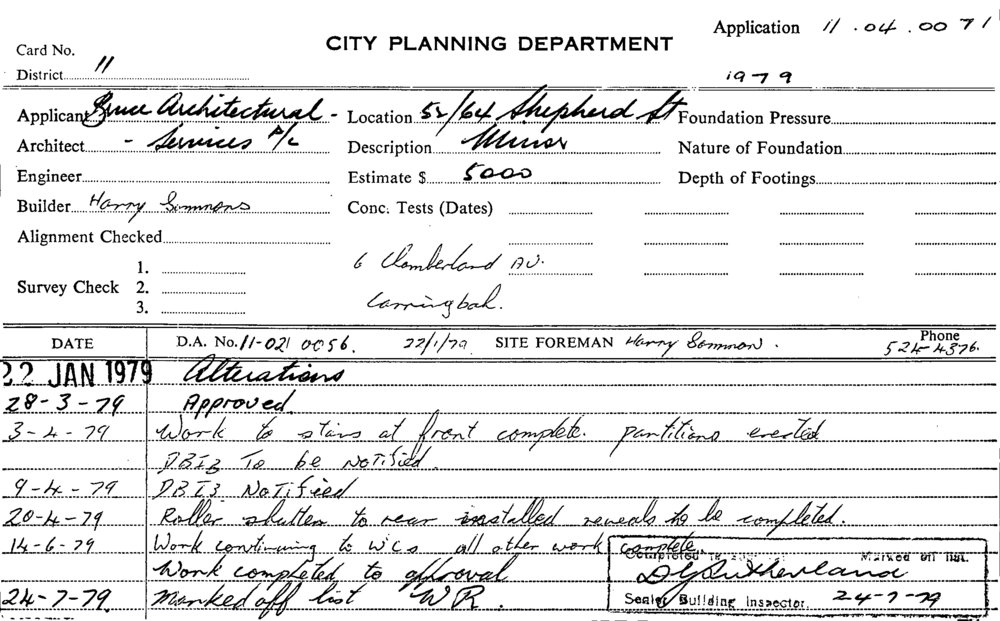 Application 11.04.0071
Card No.
CITY PLANNING DEPARTMENT
District 11
1979
Applicant Bruce Architectural - Location 52/64 Shepherd St Foundation Pressure
Architect - Services P/L Description Minor Nature of Foundation
Engineer Estimate $ 5000 Depth of Footings
Builder Harry Sommons Conc. Tests (Dates)
Alignment Checked
1. 6 Cumberland AV.
Survey Check 2.
3. Carringbah.
DATE D.A. No. 11-021 0056. 22/1/79 SITE FOREMAN Harry Sommon. Phone 524-4376.
22 JAN 1979 Alterations
28-3-79 Approved.
3-4-79 Work to stairs at front complete. partitions erected
DBI3 To be NoTified.
9-4-79 DBI3 NoTified
20-4-79 Roller shutter to rear installed reveals to be completed.
14-6-79 Work continuing to WCs all other work complete
Work completed to approval
24-7-79. Marked off list WR.
Marked off list.
D G Sutherland
Senior Building Inspector. 24-7-79